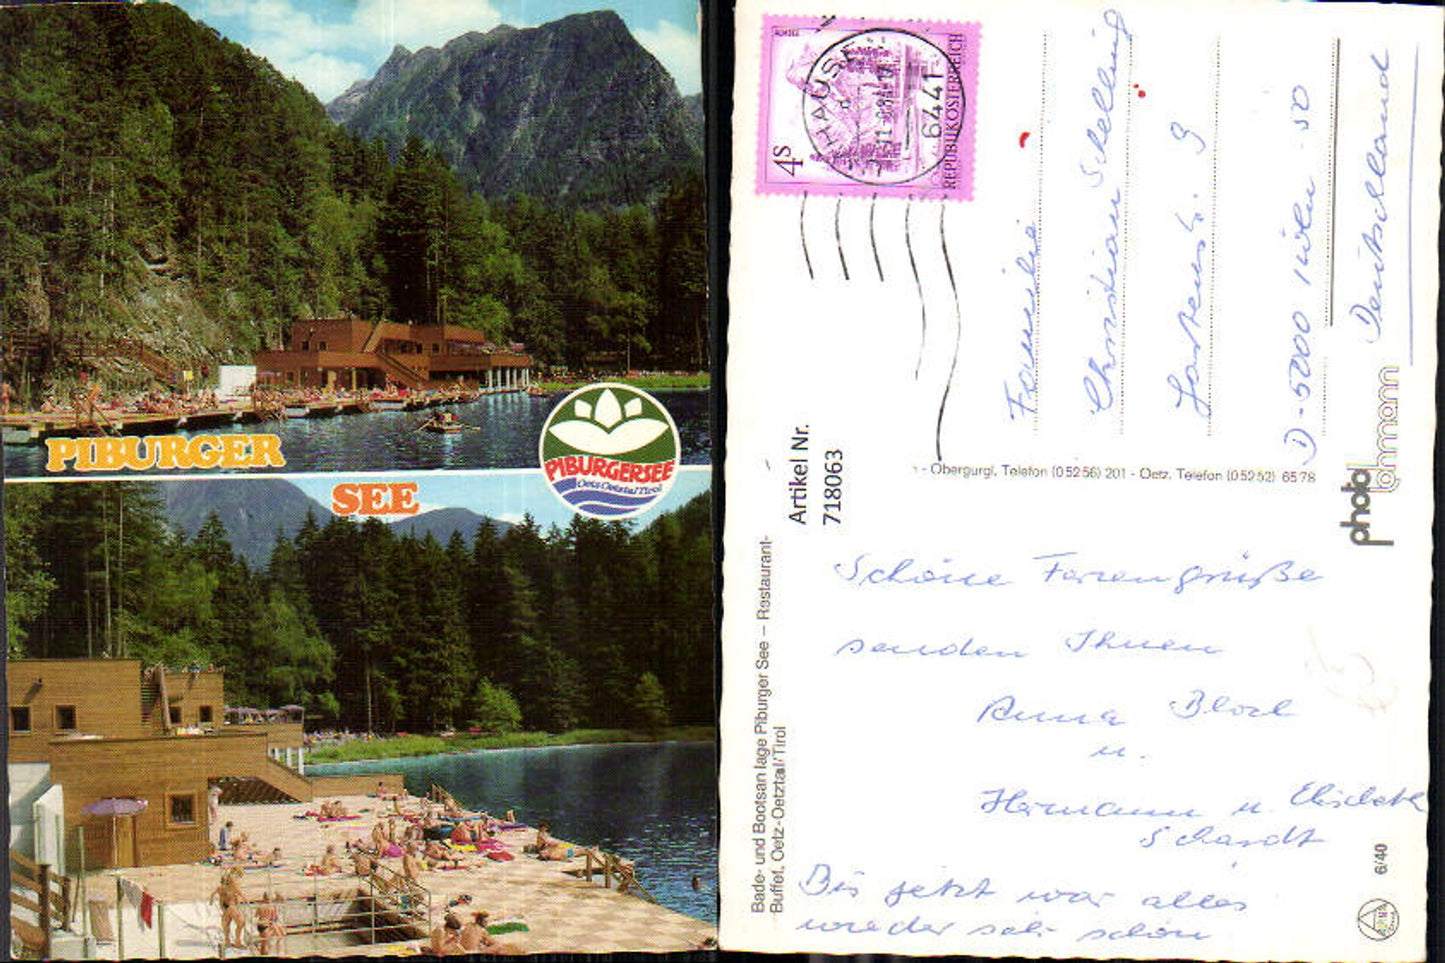 PIBURGER
SEE
PIBURGERSEE
Oetz Oetztal/Tirol
ALMSEE
4S
REPUBLIK ÖSTERREICH
6441
Familie
Christian Schellnig
9
D-5000 Köln 50
Deutschland
Artikel Nr.
718063
- Obergurgl, Telefon (0 52 56) 201 - Oetz, Telefon (0 52 52) 65 78
photo lohmann
Bade- und Bootsanlage Piburger See – Restaurant-
Buffet, Oetz-Oetztal/Tirol
Schöne Feriengrüße
senden Ihnen
Anna
u.
Hermann u. Elisabeth
Schardt
Bis jetzt war alles
wieder sehr schön
6/40